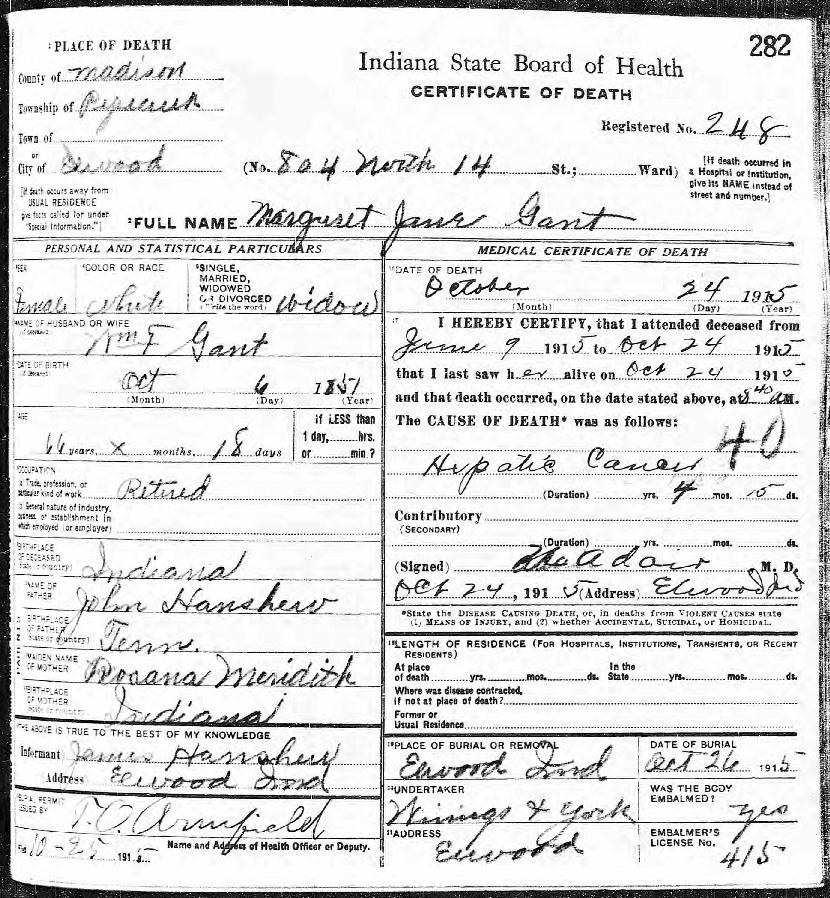 282
PLACE OF DEATH
County of Madison
Township of Pipecreek
Town of
or
City of Elwood
Indiana State Board of Health
CERTIFICATE OF DEATH
Registered No. 248
(No. 804 North 14 St.; Ward)
[If death occurred in
a Hospital or Institution,
give its NAME instead of
street and number.]
[If death occurs away from
USUAL RESIDENCE
give facts called for under
"Special Information."]
FULL NAME Margaret Jane Gant
PERSONAL AND STATISTICAL PARTICULARS
SEX
Female
COLOR OR RACE
White
SINGLE,
MARRIED,
WIDOWED
OR DIVORCED
(Write the word)
Widow
NAME OF HUSBAND OR WIFE
Wm F Gant
DATE OF BIRTH
Oct 6 1851
(Month) (Day) (Year)
AGE
years, x months, 18 days
If LESS than
1 day, hrs.
or min.?
OCCUPATION
Trade, profession, or
particular kind of work Retired
General nature of industry,
business, or establishment in
which employed (or employer)
BIRTHPLACE
OF DECEASED
Indiana
NAME OF
FATHER
John Hanshew
BIRTHPLACE
OF FATHER
Tenn.
MAIDEN NAME
OF MOTHER
Rosana Meridith
BIRTHPLACE
OF MOTHER
Indiana
THE ABOVE IS TRUE TO THE BEST OF MY KNOWLEDGE
Informant James Hanshew
Address Elwood Ind
BURIAL PERMIT
ISSUED BY
T.O. Armfield
Name and Address of Health Officer or Deputy.
10-25 1915
MEDICAL CERTIFICATE OF DEATH
DATE OF DEATH
October 24 1915
(Month) (Day) (Year)
I HEREBY CERTIFY, that I attended deceased from
June 9 1915 to Oct 24 1915
that I last saw her alive on Oct 24 1915
and that death occurred, on the date stated above, at 8 40 M.
The CAUSE OF DEATH* was as follows:
40
Hepatic Cancer
(Duration) yrs. 4 mos. 15 ds.
Contributory
(SECONDARY)
(Duration) yrs. mos. ds.
(Signed) Adair M. D.
Oct 24, 1915 (Address) Elwood Ind
*State the DISEASE CAUSING DEATH, or, in deaths from VIOLENT CAUSES state
(1) MEANS OF INJURY, and (2) whether ACCIDENTAL, SUICIDAL, or HOMICIDAL.
LENGTH OF RESIDENCE (FOR HOSPITALS, INSTITUTIONS, TRANSIENTS, OR RECENT
RESIDENTS)
At place In the
of death yrs. mos. ds. State yrs. mos. ds.
Where was disease contracted,
if not at place of death?
Former or
Usual Residence
PLACE OF BURIAL OR REMOVAL
Elwood Ind
DATE OF BURIAL
Oct 26 1915
UNDERTAKER
Winings & York
ADDRESS
Elwood
WAS THE BODY
EMBALMED?
yes
EMBALMER'S
LICENSE No.
415